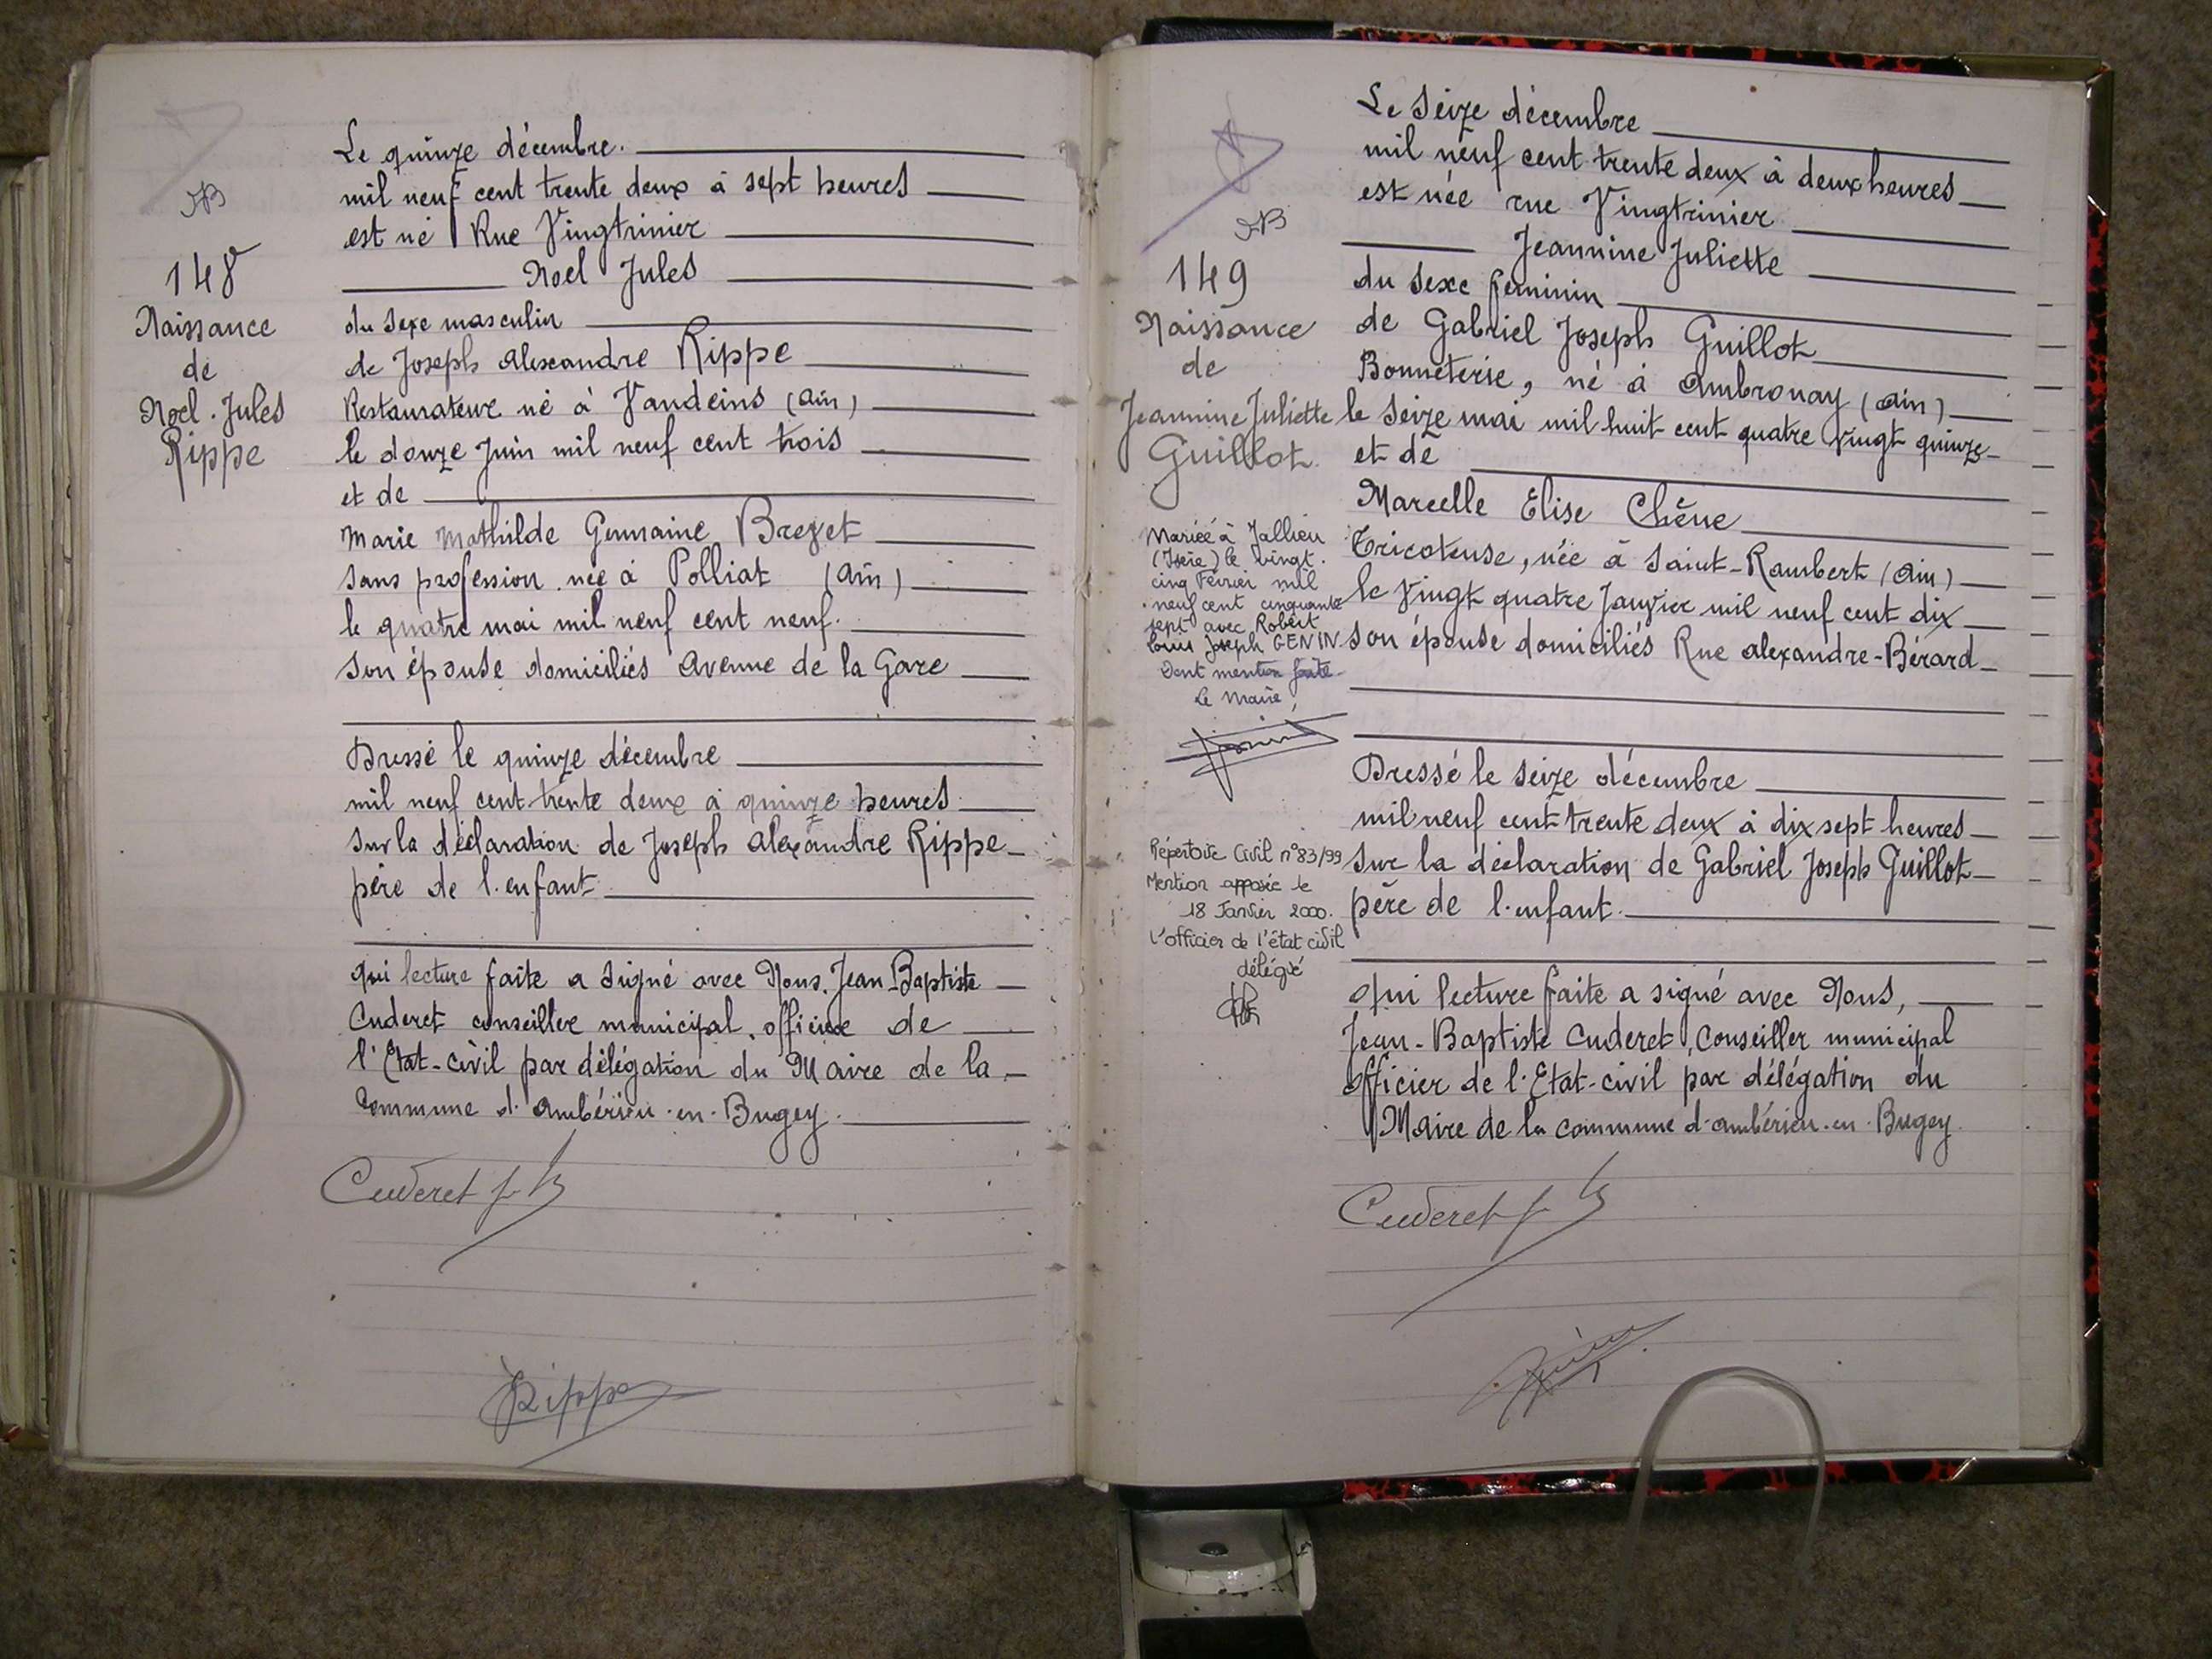 148
Naissance
de
Noel. Jules
Rippe
Le quinze décembre.
mil neuf cent trente deux à sept heures
est né Rue Vingtrinier
Noel Jules
du sexe masculin
de Joseph Alexandre Rippe
Restaurateur né à Vandeins (Ain)
le douze Juin mil neuf cent trois
et de
Marie Mathilde Germaine Brevet
sans profession née à Polliat (Ain)
le quatre mai mil neuf cent neuf.
son épouse domiciliés Avenue de la Gare
Dressé le quinze décembre
mil neuf cent trente deux à quinze heures
sur la déclaration de Joseph Alexandre Rippe
père de l'enfant
qui lecture faite a signé avec Nous, Jean-Baptiste
Cuderet conseiller municipal, officier de
l'Etat-civil par délégation du Maire de la
Commune d'Ambérieu-en-Bugey.
Cuderet J B
Rippe
149
Naissance
de
Jeannine Juliette
Guillot
Mariée à Jallieu
(Isère) le vingt.
cinq Février mil
neuf cent cinquante
sept avec Robert
Louis Joseph GENIN
Dont mention faite
Le Maire,
Répertoire Civil n°83/99
Mention apposée le
18 Janvier 2000.
L'officier de l'état civil
délégué
Le seize décembre
mil neuf cent trente deux à deux heures
est née rue Vingtrinier
Jeannine Juliette
du sexe féminin
de Gabriel Joseph Guillot
Bonneterie, né à Ambronay (Ain)
le seize mai mil huit cent quatre vingt quinze
et de
Marcelle Elise Chêne
Tricoteuse, née à Saint-Rambert (Ain)
le vingt quatre Janvier mil neuf cent dix
son épouse domiciliés Rue Alexandre-Bérard
Dressé le seize décembre
mil neuf cent trente deux à dix sept heures
sur la déclaration de Gabriel Joseph Guillot
père de l'enfant.
qui lecture faite a signé avec Nous,
Jean-Baptiste Cuderet, Conseiller municipal
officier de l'Etat-civil par délégation du
Maire de la commune d'Ambérieu-en-Bugey
Cuderet J B